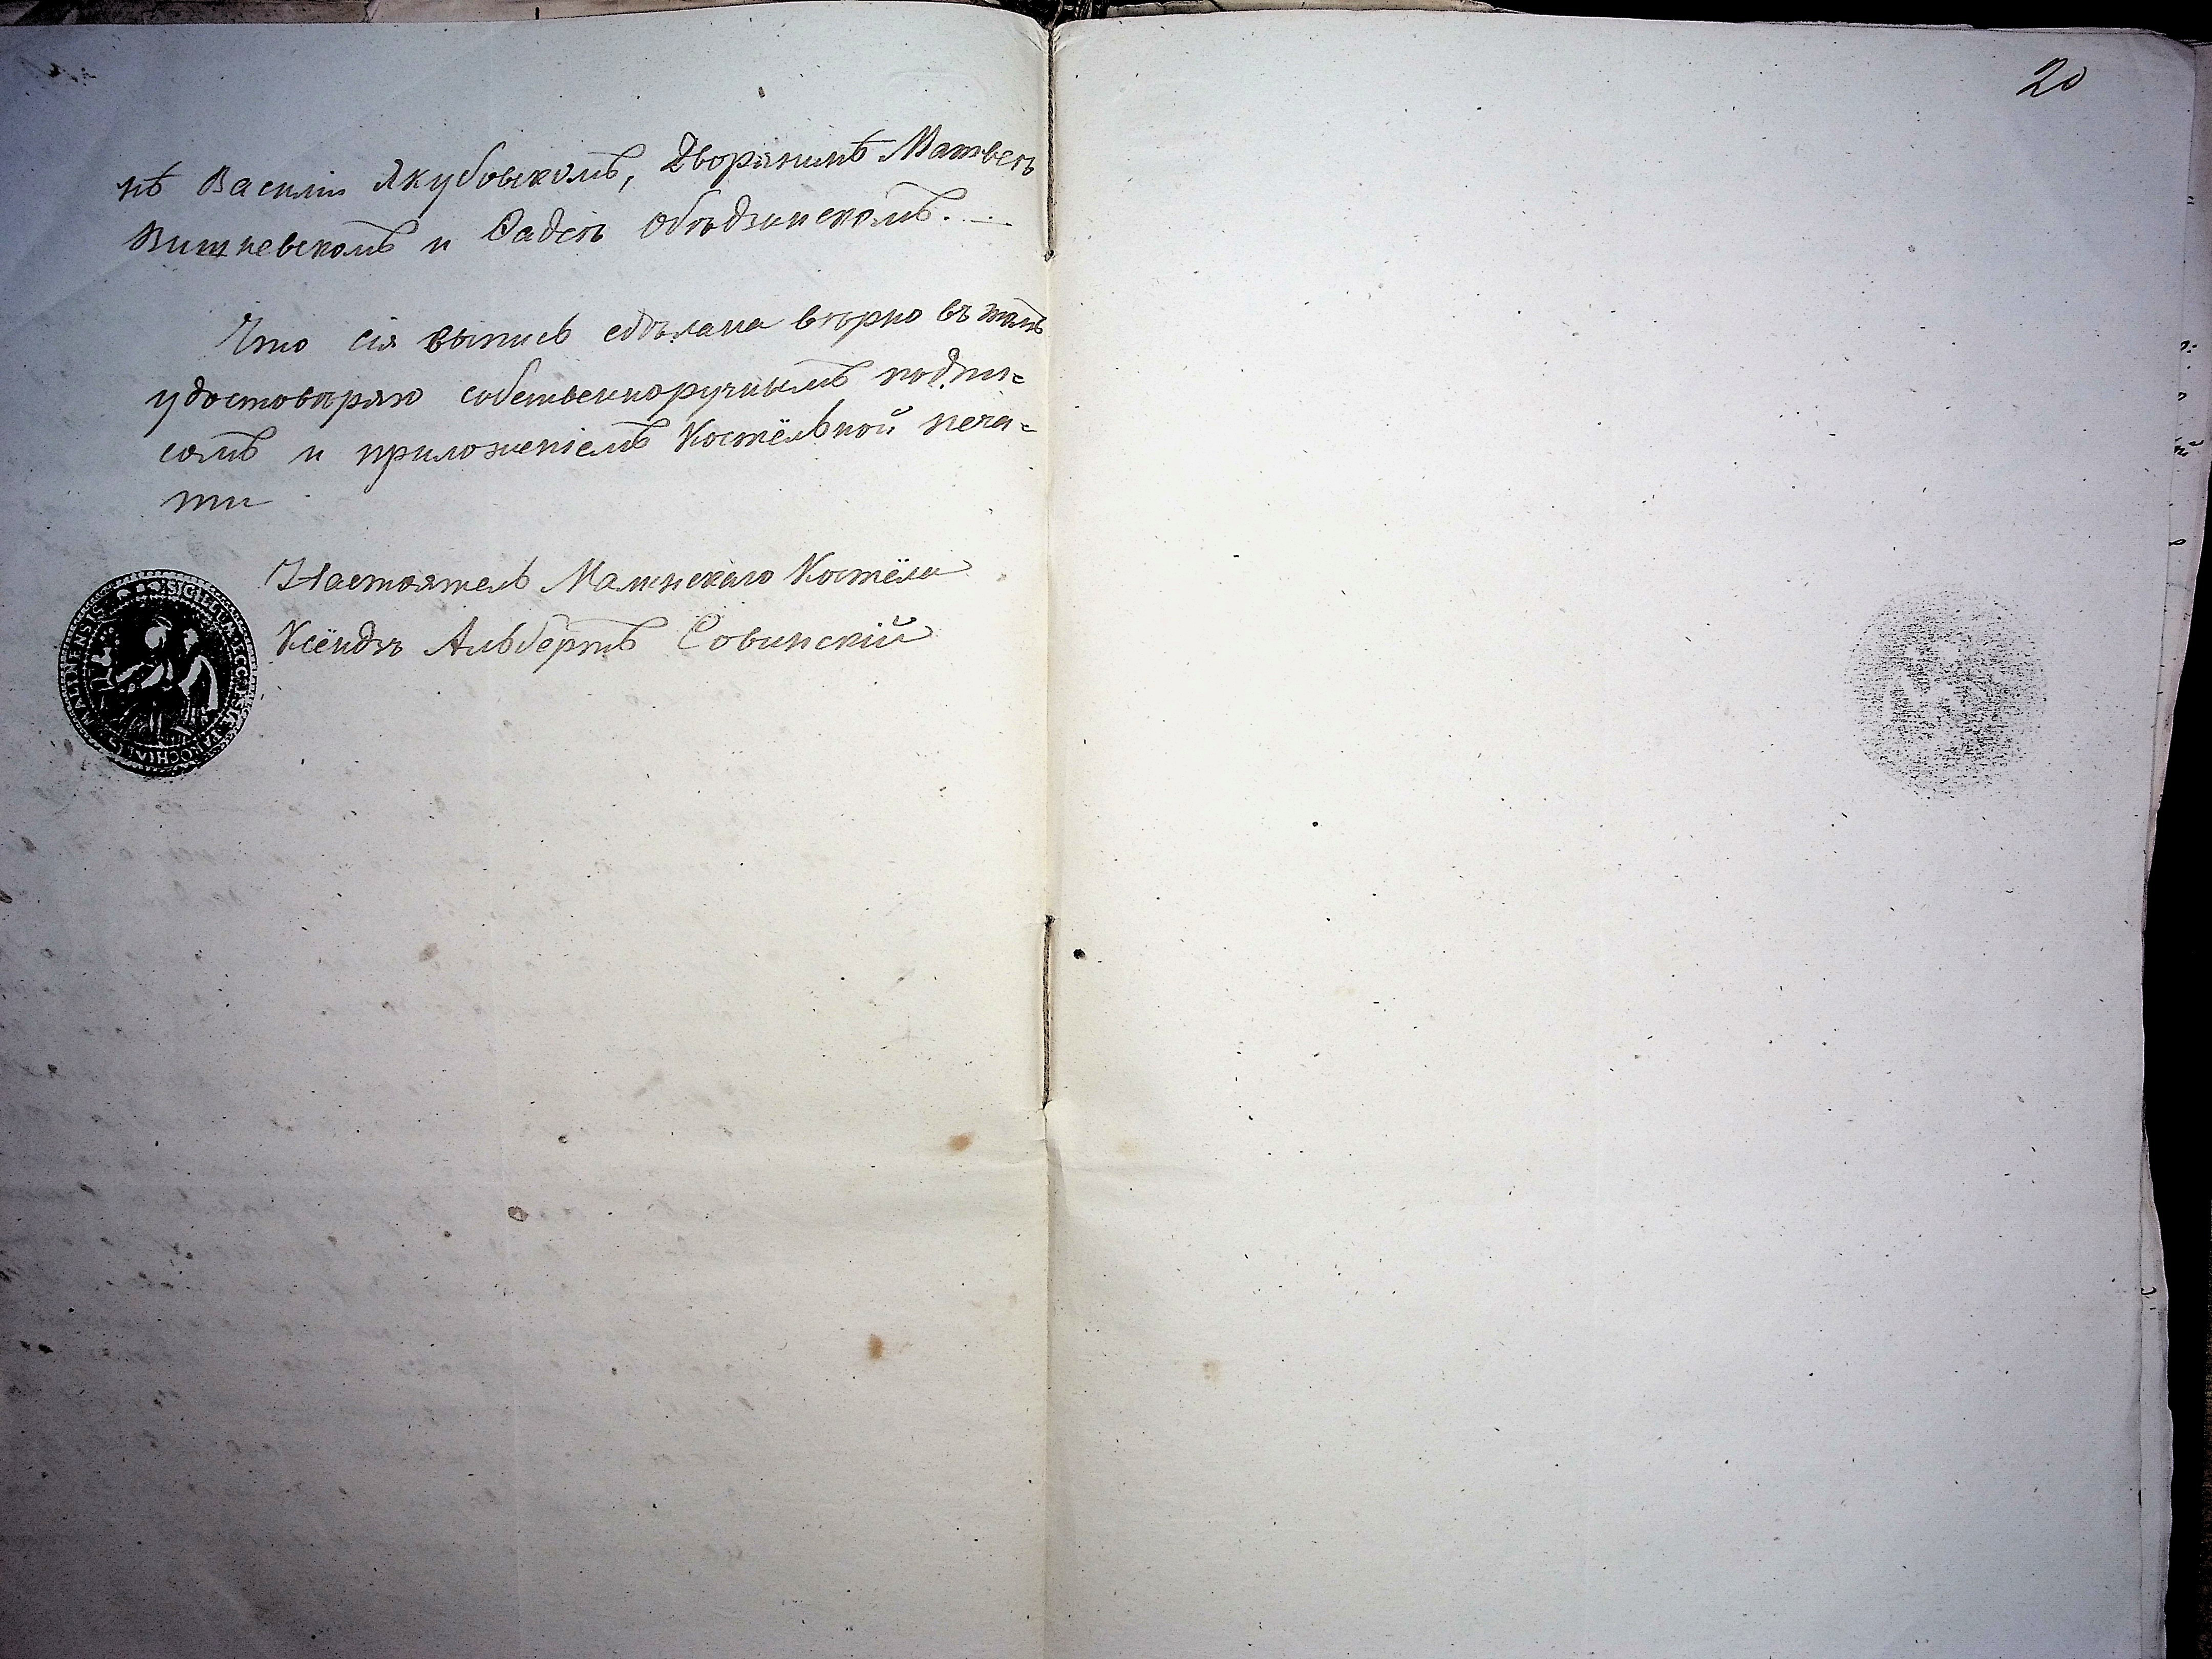 нѣ Василіи Якубовскомъ, Дворянинѣ Матвеѣ
Вишневскомъ и Фадеѣ Объдзинскомъ.
Что сія выпись сдѣлана вѣрно въ томъ
удостовѣряю собственноручнымъ подпи=
сомъ и приложеніемъ Костёльной печа=
ти
Настоятель Малинскаго Костёла
Ксёндзъ Альбертъ Совинскій
SIGILLUM ECCLESIÆ PAROCHIALIS MALINENSIS
20